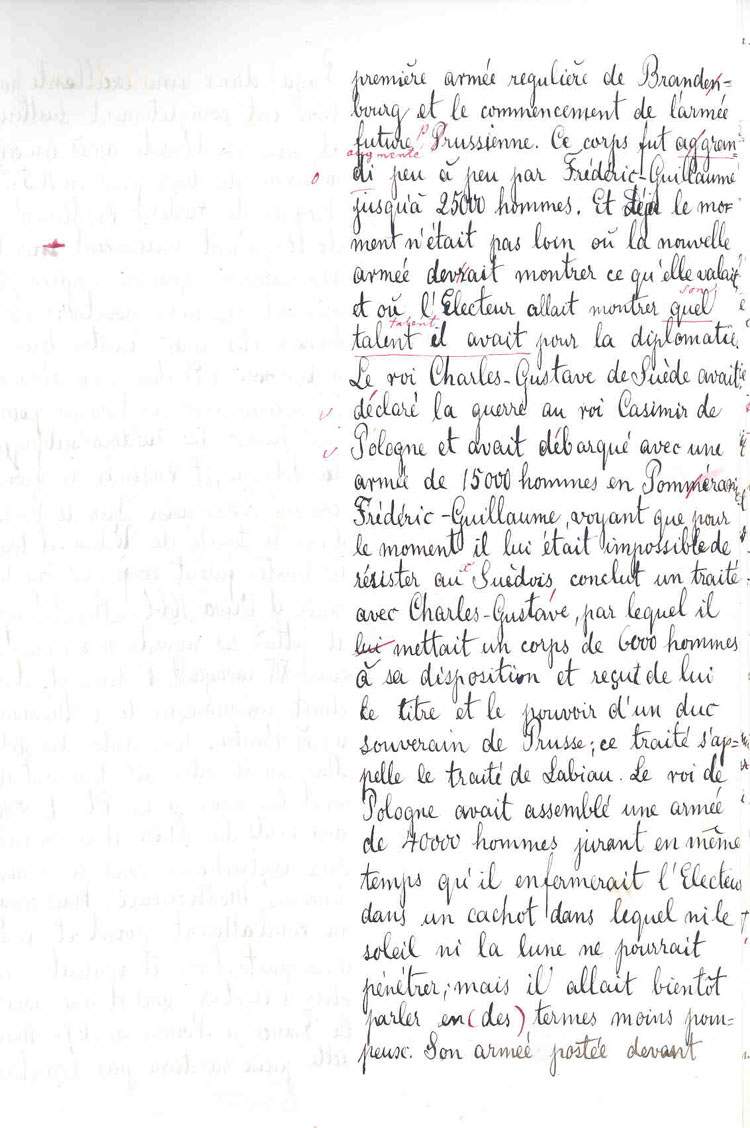 première armée regulière de Branden=
bourg et le commencement de l'armée
future p Prussienne. Ce corps fut aggran
augmenté
di peu à peu par Frédéric-Guillaume
jusqu'à 25000 hommes. Et déjà le mo=
ment n'était pas loin où la nouvelle
armée devrait montrer ce qu'elle valait
son
et où l'Electeur allait montrer quel
talent
talent il avait pour la diplomatie.
Le roi Charles-Gustave de Suède avait
déclaré la guerre au roi Casimir de
Pologne et avait débarqué avec une
armée de 15000 hommes en Pomméranie
Frédéric-Guillaume, voyant que pour
le moment il lui était impossible de
résister aux Suèdois conclut un traité
avec Charles-Gustave, par lequel il
lui mettait un corps de 6000 hommes
à sa disposition et reçut de lui
le titre et le pouvoir d'un duc
souverain de Prusse; ce traité s'ap=
pelle le traité de Labiau. Le roi de
Pologne avait assemblé une armée
de 40000 hommes jurant en même
temps qu'il enfermerait l'Electeur
dans un cachot dans lequel ni le
soleil ni la lune ne pourrait
pénétrer; mais il allait bientôt
parler en (des) termes moins pom=
peux. Son armée postée devant